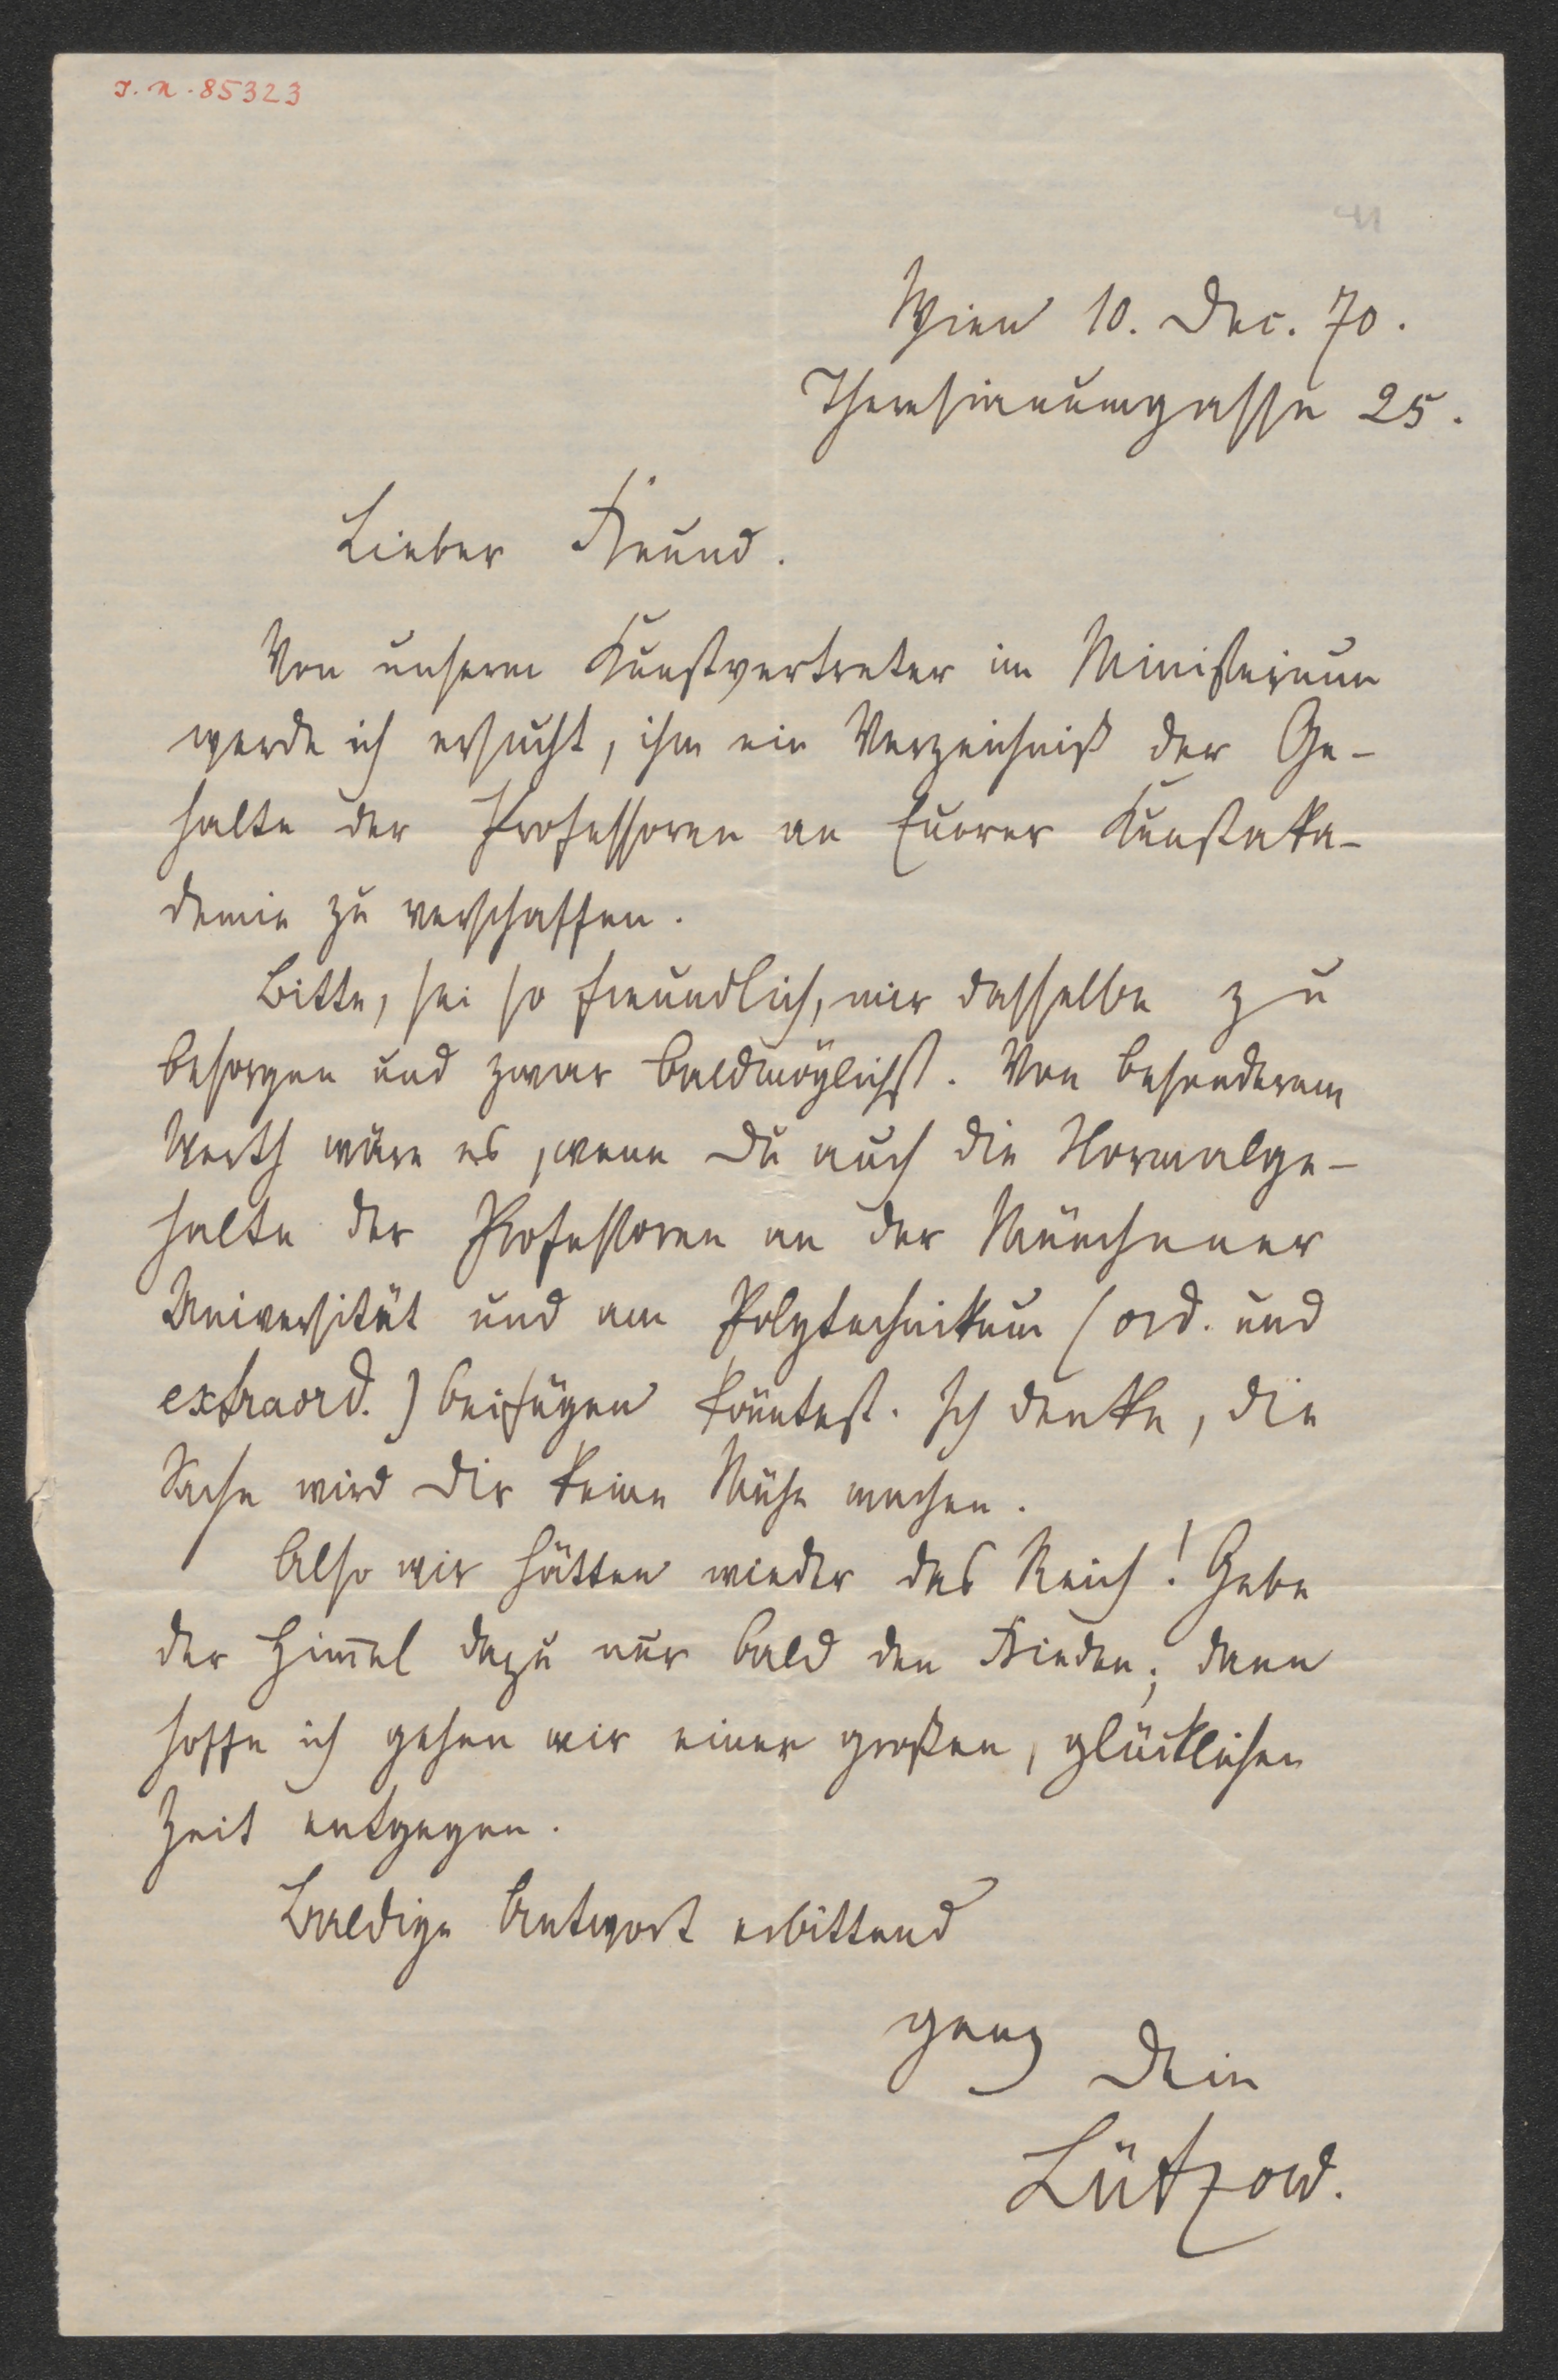 I. N. 85323
Wien 10. Dec. 70.
Theresianumgasse 25.
Lieber Freund.
Von unserm Kunstvertreter im Ministerium
werde ich ersucht, ihm ein Verzeichniß der Ge-
halte der Professoren an Eurer Kunstaka-
demie zu verschaffen.
Bitte, sei so freundlich, mir dasselbe zu
besorgen und zwar baldmöglichst. Von besonderem
Werth wäre es, wenn Du auch die Normalge-
halte der Professoren an der Münchener
Universität und am Polytechnikum (ord. und
extraord.) beifügen könntest. Ich denke, die
Sache wird Dir keine Mühe machen.
Also wir hätten wieder das Reich! Gebe
der Him̅el dazu nur bald den Frieden; dann
hoffe ich gehen wir einer großen, glücklichen
Zeit entgegen.
Baldige Antwort erbittend
ganz Dein
Lützow.